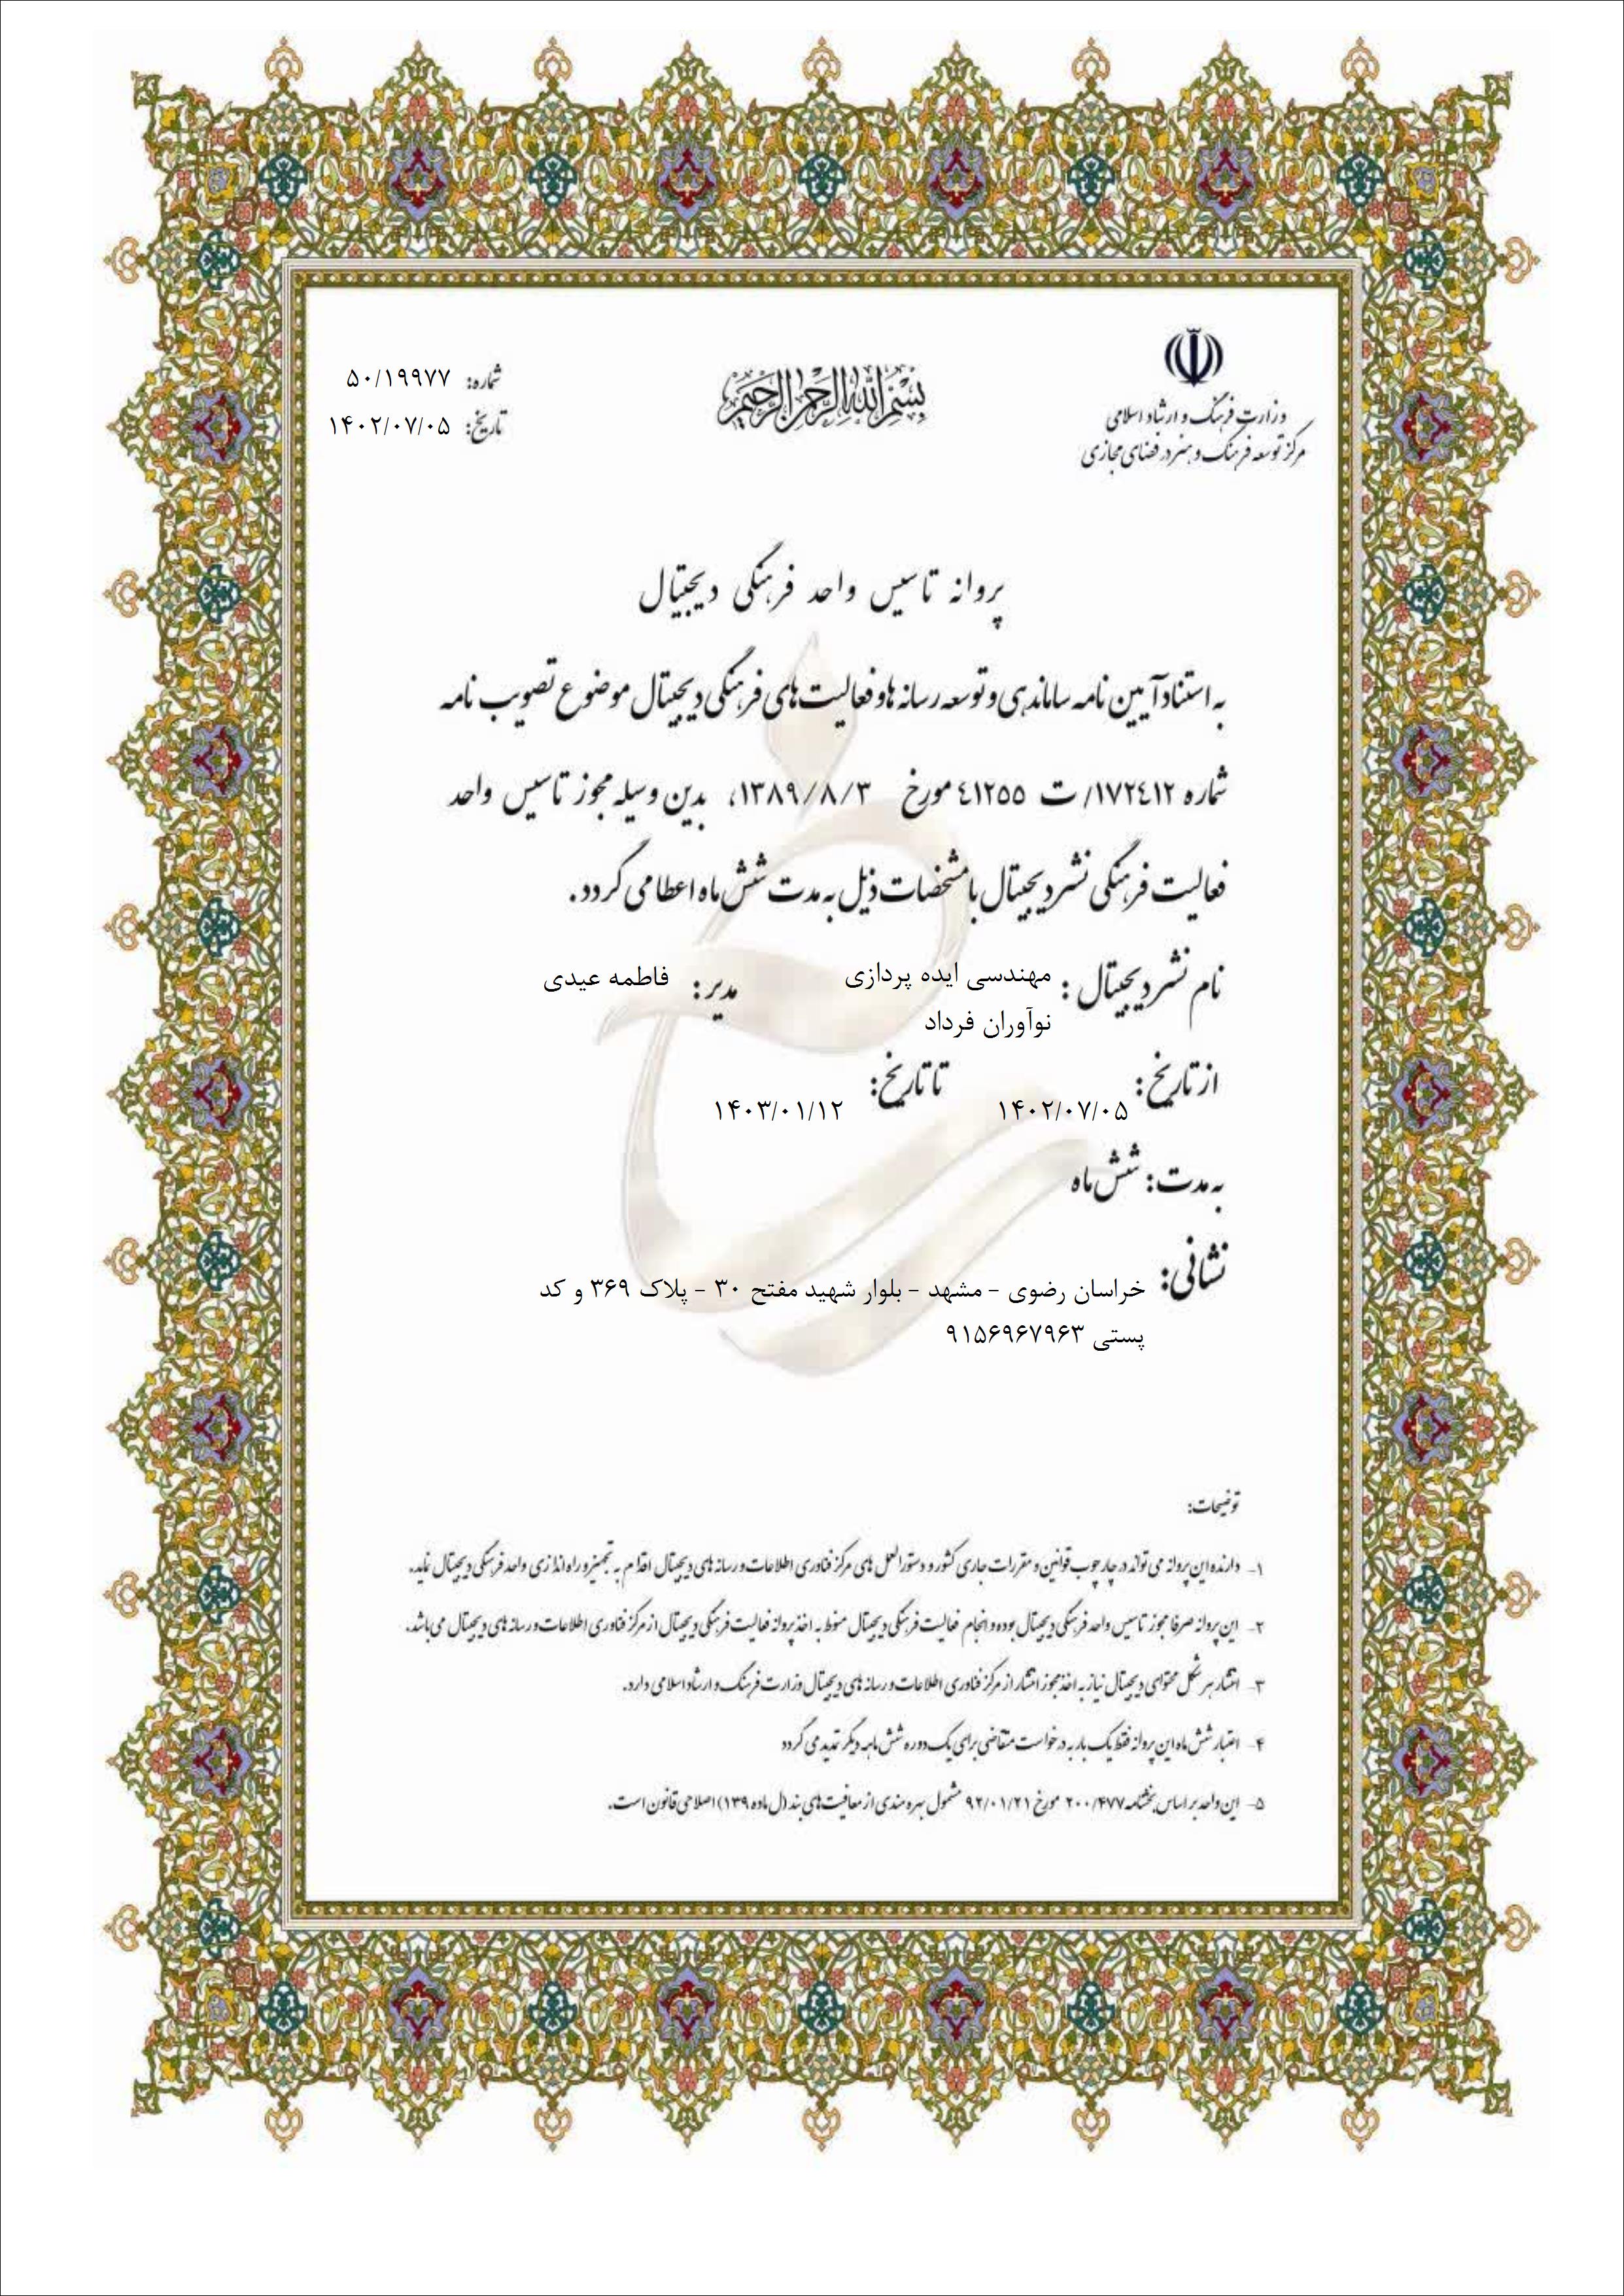 وزارت فرهنگ و ارشاد اسلامی
مرکز توسعه فرهنگ و هنر در فضای مجازی
بسم الله الرحمن الرحیم
شماره: ۵۰/۱۹۹۷۷
تاریخ: ۱۴۰۲/۰۷/۰۵
پروانه تاسیس واحد فرهنگی دیجیتال
به استناد آیین نامه ساماندهی و توسعه رسانه ها و فعالیت های فرهنگی دیجیتال موضوع تصویب نامه
شماره ۱۷۲٤۱۲/ ت ٤۱۲۵۵ مورخ ۱۳۸۹/۸/۳، بدین وسیله مجوز تاسیس واحد
فعالیت فرهنگی نشر دیجیتال با مشخصات ذیل به مدت شش ماه اعطا می گردد.
نام نشر دیجیتال: مهندسی ایده پردازی مدیر: فاطمه عیدی
نوآوران فرداد
از تاریخ: ۱۴۰۲/۰۷/۰۵ تا تاریخ: ۱۴۰۳/۰۱/۱۲
به مدت: شش ماه
نشانی: خراسان رضوی - مشهد - بلوار شهید مفتح ۳۰ - پلاک ۳۶۹ و کد
پستی ۹۱۵۶۹۶۷۹۶۳
توضیحات:
۱- دارنده این پروانه می تواند در چارچوب قوانین و مقررات جاری کشور و دستورالعمل های مرکز فناوری اطلاعات و رسانه های دیجیتال اقدام به تجهیز و راه اندازی واحد فرهنگی دیجیتال نماید.
۲- این پروانه صرفا مجوز تاسیس واحد فرهنگی دیجیتال بوده و انجام فعالیت فرهنگی دیجیتال منوط به اخذ پروانه فعالیت فرهنگی دیجیتال از مرکز فناوری اطلاعات و رسانه های دیجیتال می باشد.
۳- انتشار هر شکل محتوای دیجیتال نیاز به اخذ مجوز انتشار از مرکز فناوری اطلاعات و رسانه های دیجیتال وزارت فرهنگ و ارشاد اسلامی دارد.
۴- اعتبار شش ماه این پروانه فقط یک بار به درخواست متقاضی برای یک دوره شش ماهه دیگر تمدید می گردد
۵- این واحد بر اساس بخشنامه ۲۰۰/۴۷۷ مورخ ۹۲/۰۱/۲۱ مشمول بهره مندی از معافیت های بند (ل ماده ۱۳۹) اصلاحی قانون است.